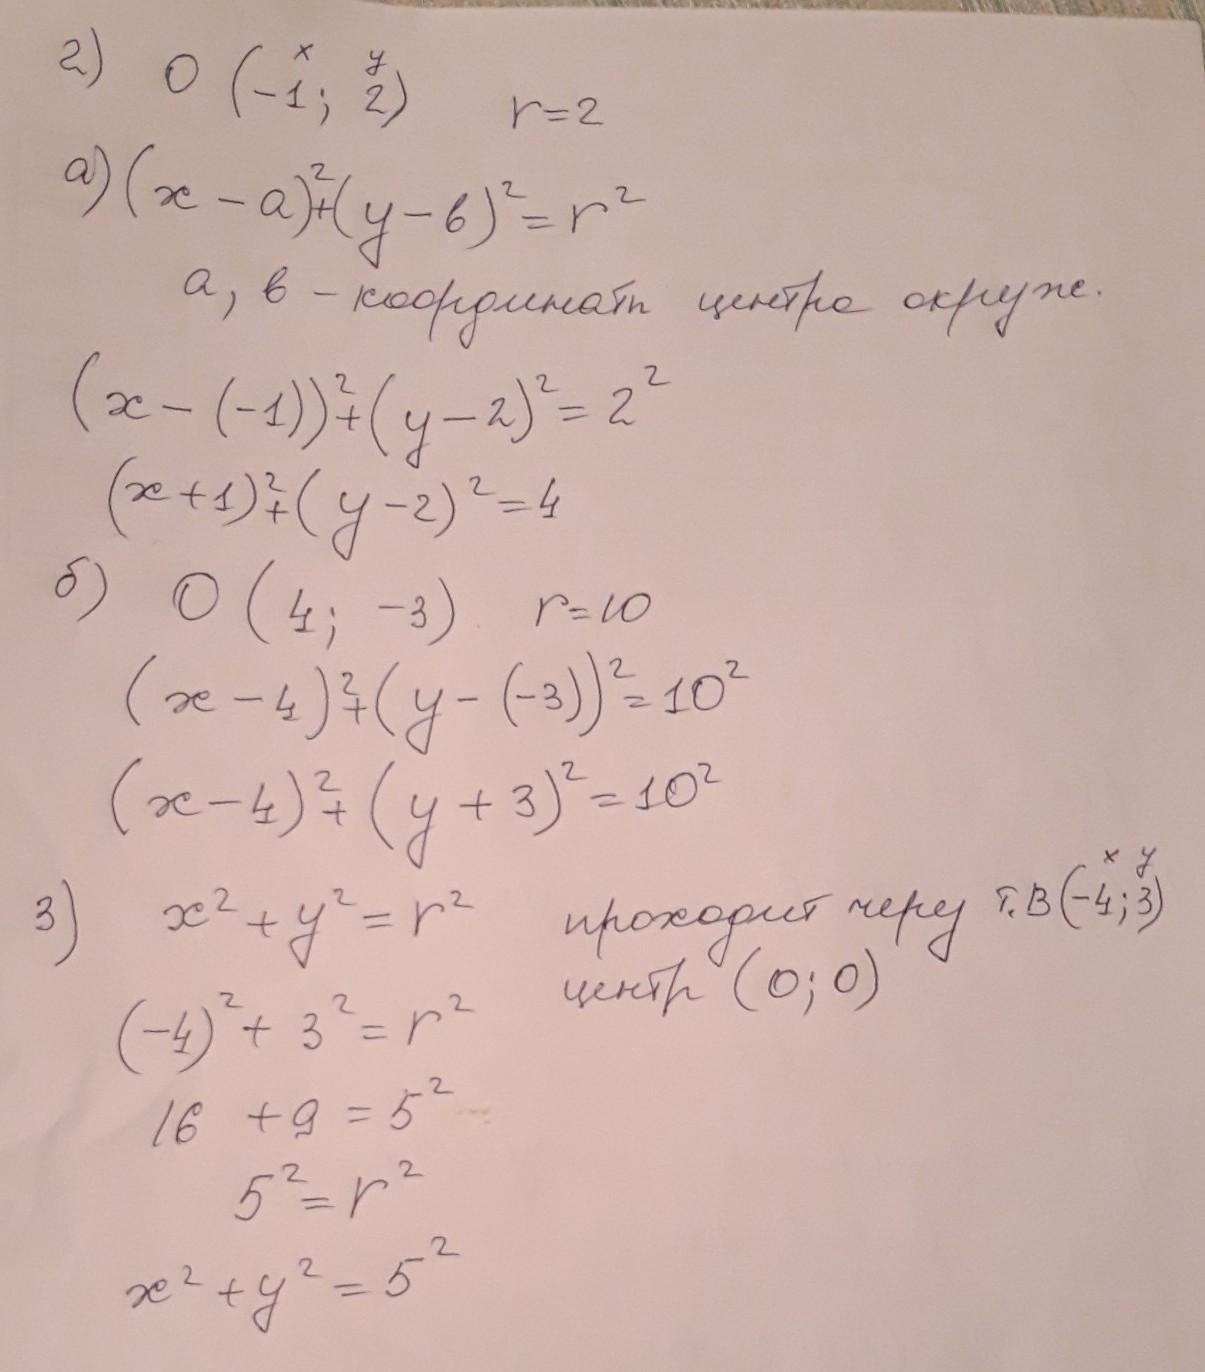 2) O (-1; 2) r=2
x y
а) (x-a)²+(y-в)²=r²
a, в - координат центра окруж.
(x-(-1))²+(y-2)²=2²
(x+1)²+(y-2)²=4
б) O (4; -3) r=10
(x-4)²+(y-(-3))²=10²
(x-4)²+(y+3)²=10²
3) x²+y²=r² проходит через т.В(-4;3)
x y
центр (0;0)
(-4)²+3²=r²
16+9=5²
5²=r²
x²+y²=5²